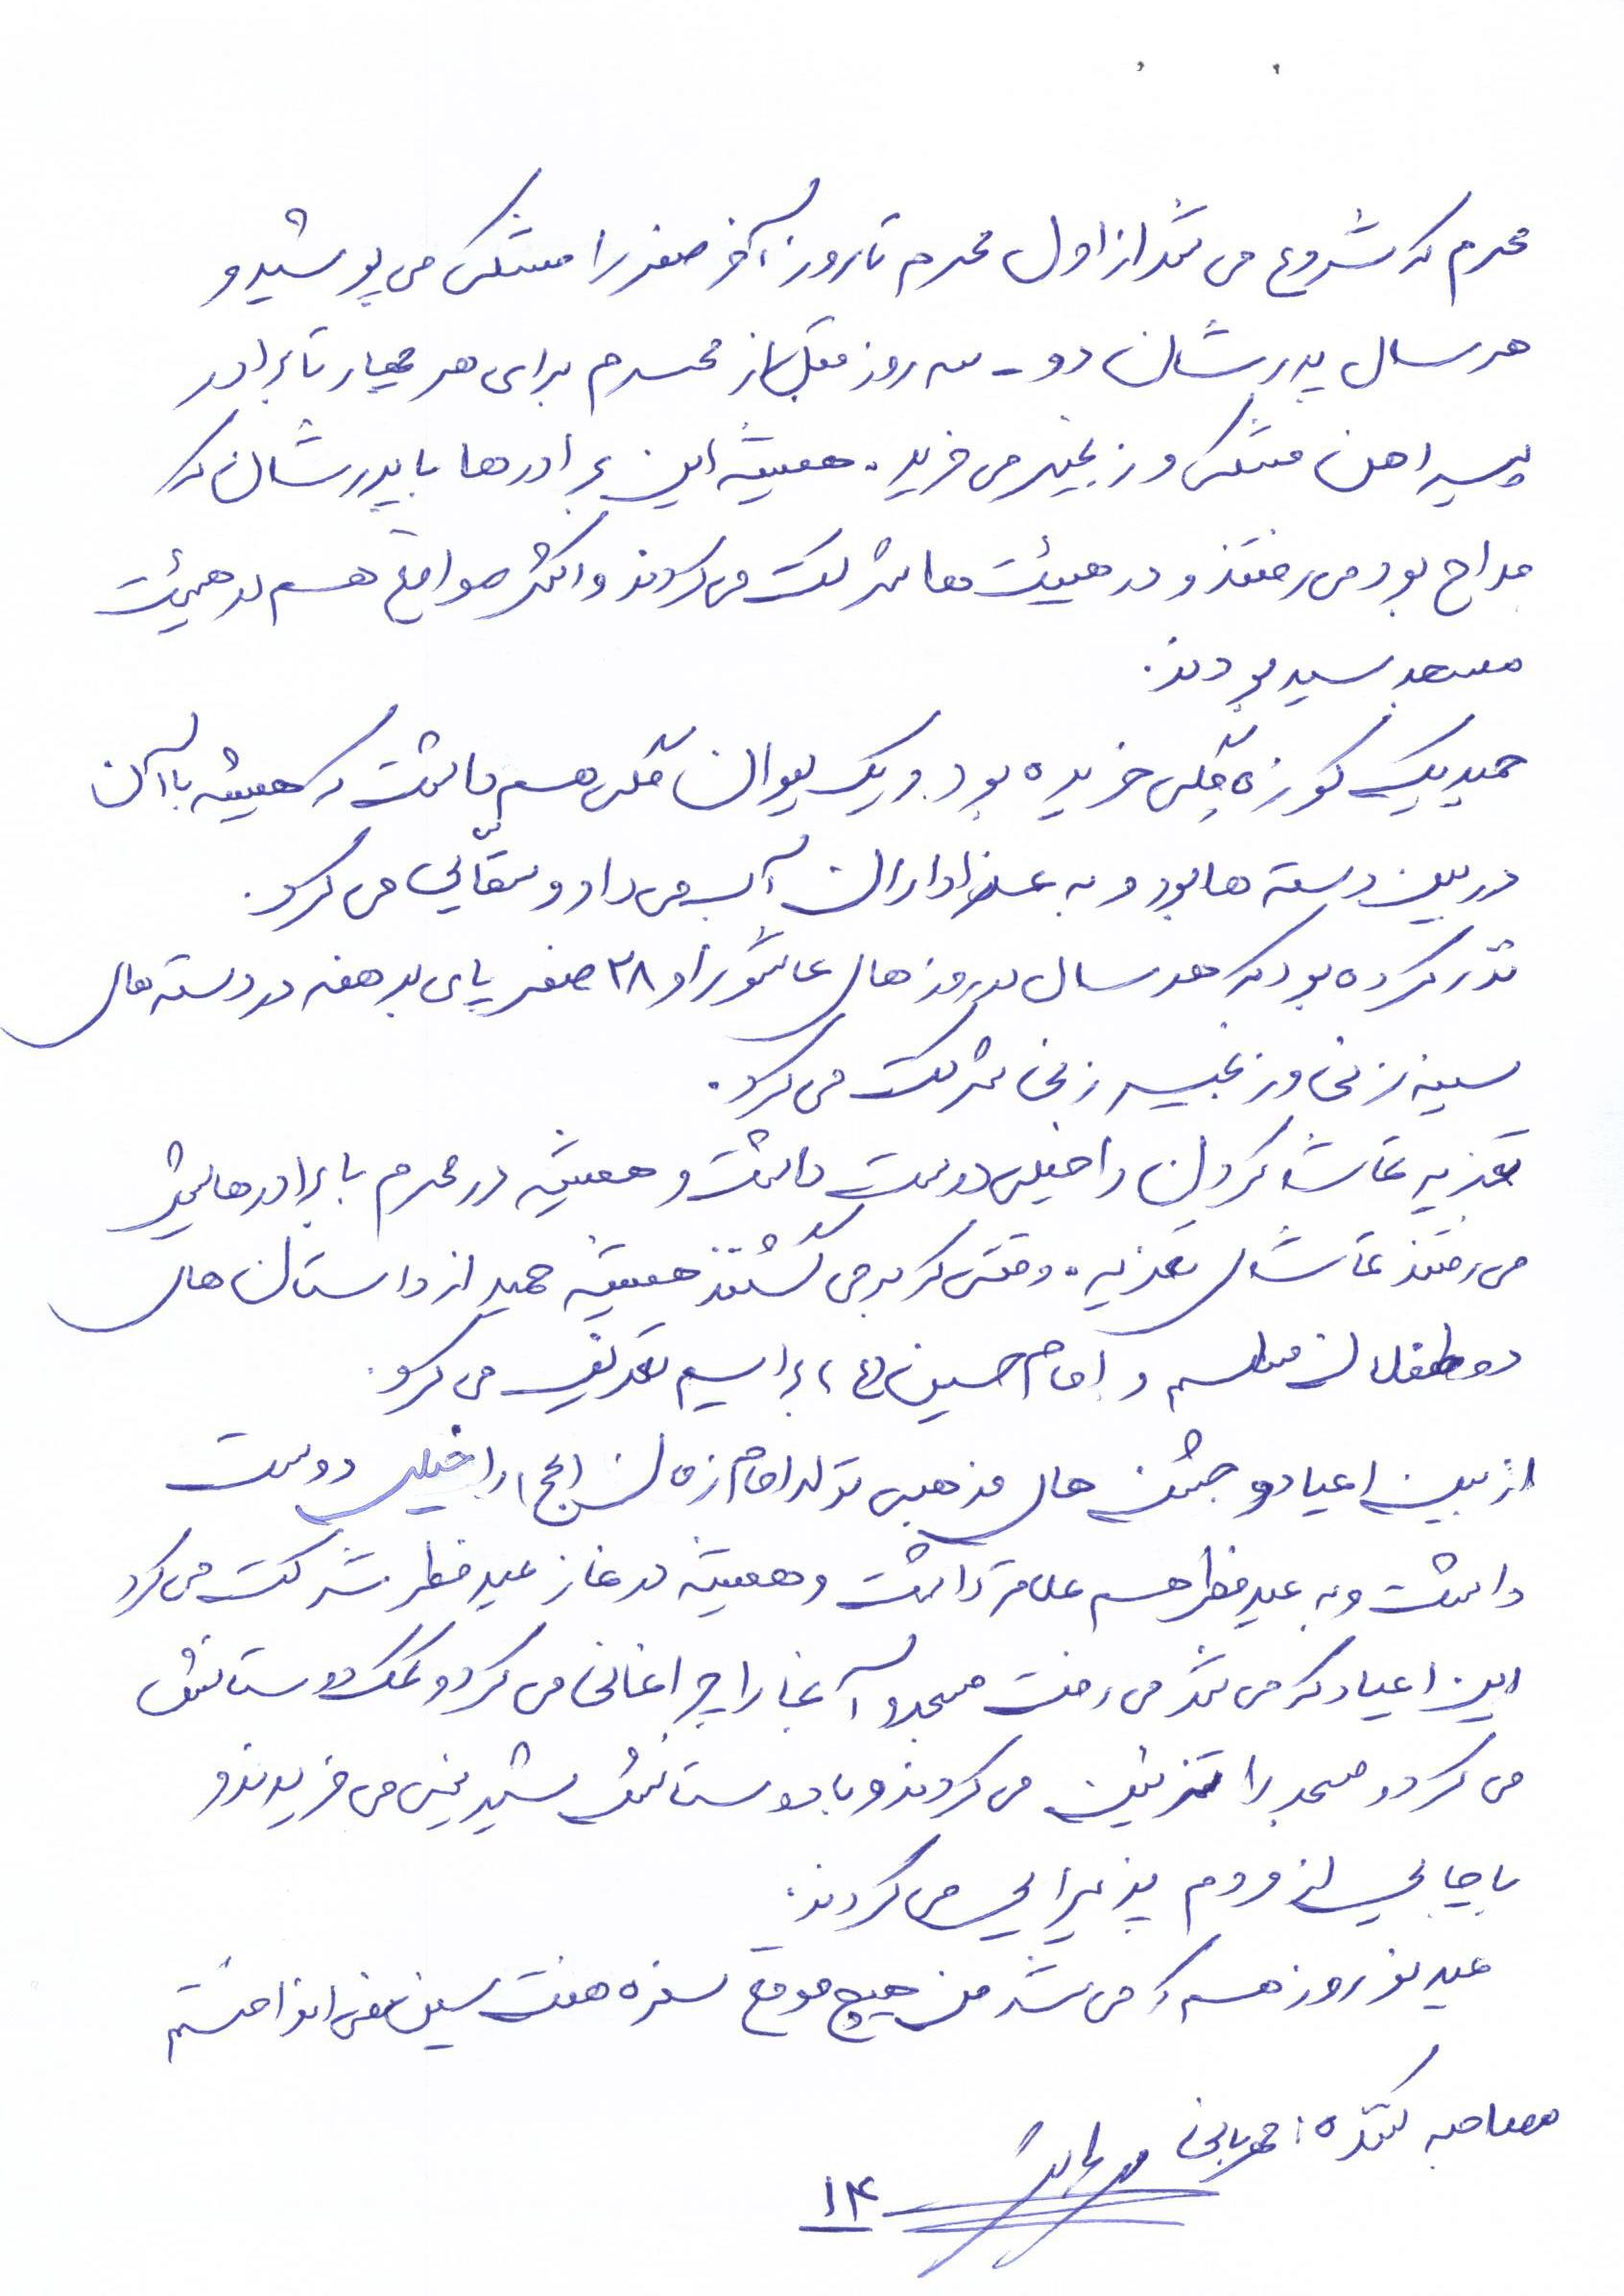 محرم که شروع می شد از اول محرم تا روز آخر صفر را مشکی می پوشید و
هر سال پدرشان دو - سه روز قبل از محرم برای هر چهار تا برادر
پیراهن مشکی و زنجیر می خرید. همیشه این برادرها با پدرشان که
مداح بود می رفتند و در هیئت ها شرکت می کردند و اکثر مواقع هم در هیئت
مسجد سید بودند.
حمید یک کوزه گِلی خریده بود و یک لیوان گلی هم داشت که همیشه با آن
در بین دسته ها بود و به عزاداران آب می داد و سقّایی می کرد.
نذر کرده بود که هر سال در روزهای عاشورا و ۲۸ صفر پای برهنه در دسته های
سینه زنی و زنجیر زنی شرکت می کرد.
تعزیه تماشا کردن را خیلی دوست داشت و همیشه در محرم با برادرهایش
می رفتند تماشای تعزیه. وقتی که برمی گشتند همیشه حمید از داستان های
دو طفلان مسلم و امام حسین (ع) برایم تعریف می کرد.
از بین اعیاد و جشن های مذهبی تولد امام زمان (عج) را خیلی دوست
داشت و به عید فطر هم علاقه داشت و همیشه در نماز عید فطر شرکت می کرد
این اعیاد که می شد می رفت مسجد و آنجا را چراغانی می کرد و کمک دوستانش
می کرد و مسجد را تزئین می کردند و با دوستانش شیرینی می خریدند و
با چایی از مردم پذیرایی می کردند.
عید نوروز هم که می شد من هیچ موقع سفره هفت سین نمی انداختم
مصاحبه کننده: مهربانی
۱۴